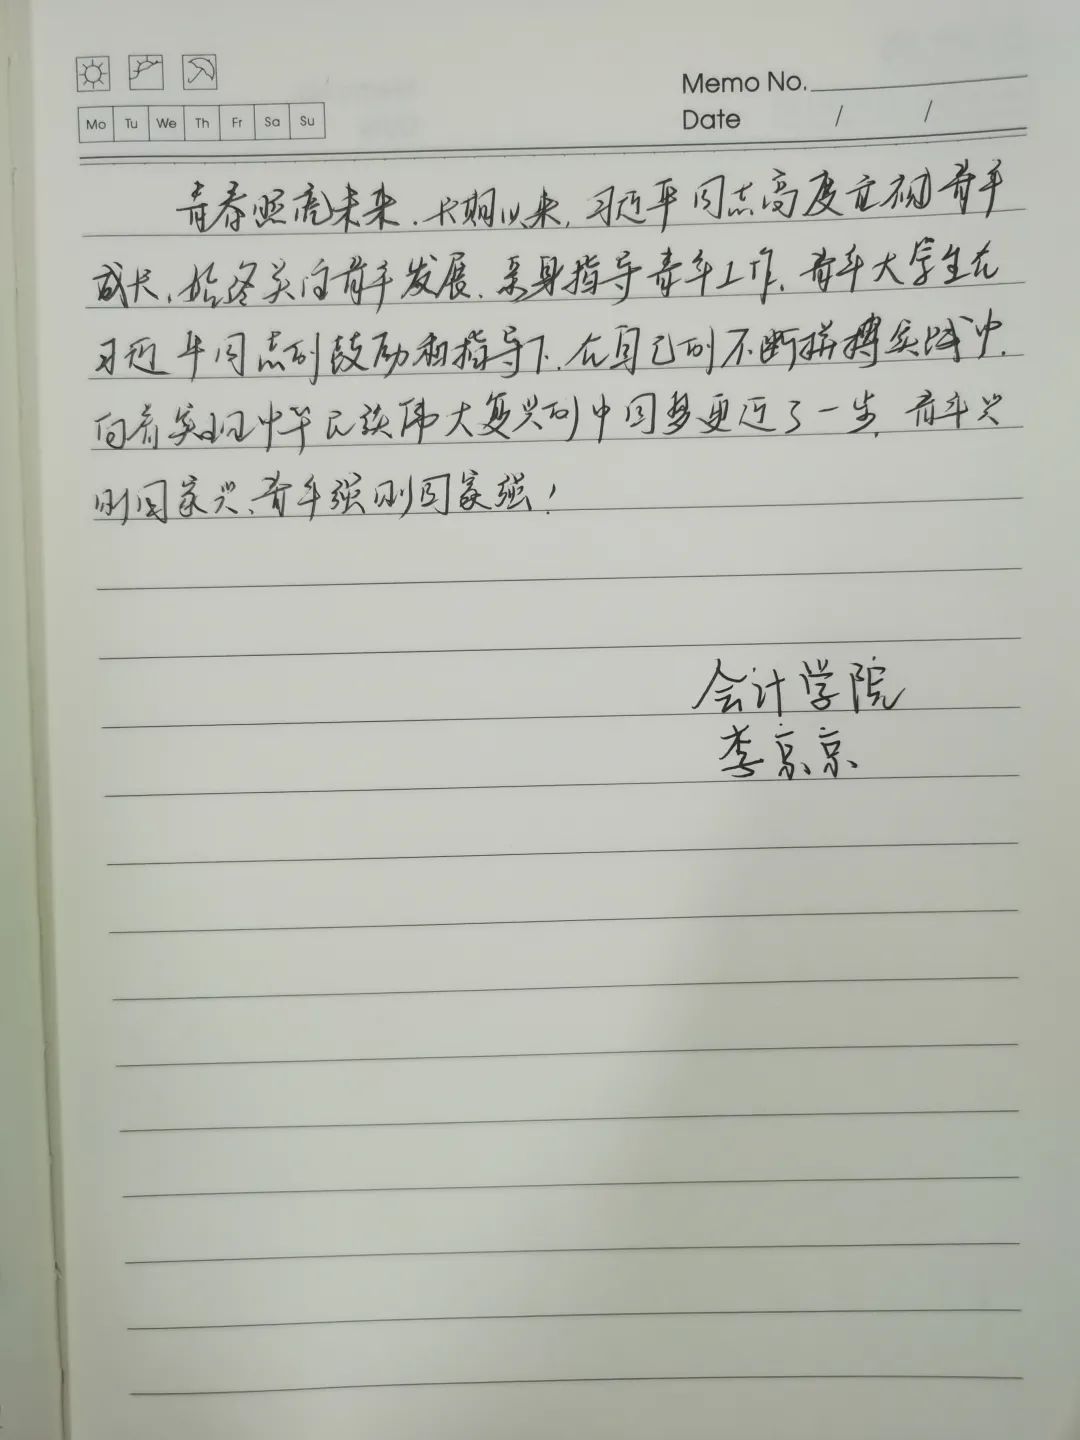 Memo No.
Date / /
Mo Tu We Th Fr Sa Su
青春照亮未来.长期以来,习近平同志高度重视青年
成长,始终关向青年发展.亲身指导青年工作.青年大学生在
习近平同志的鼓励和指导下.在自己的不断拼搏实践中.
向着实现中华民族伟大复兴的中国梦更近了一步.青年兴
则国家兴、青年强则国家强!
会计学院
李京京